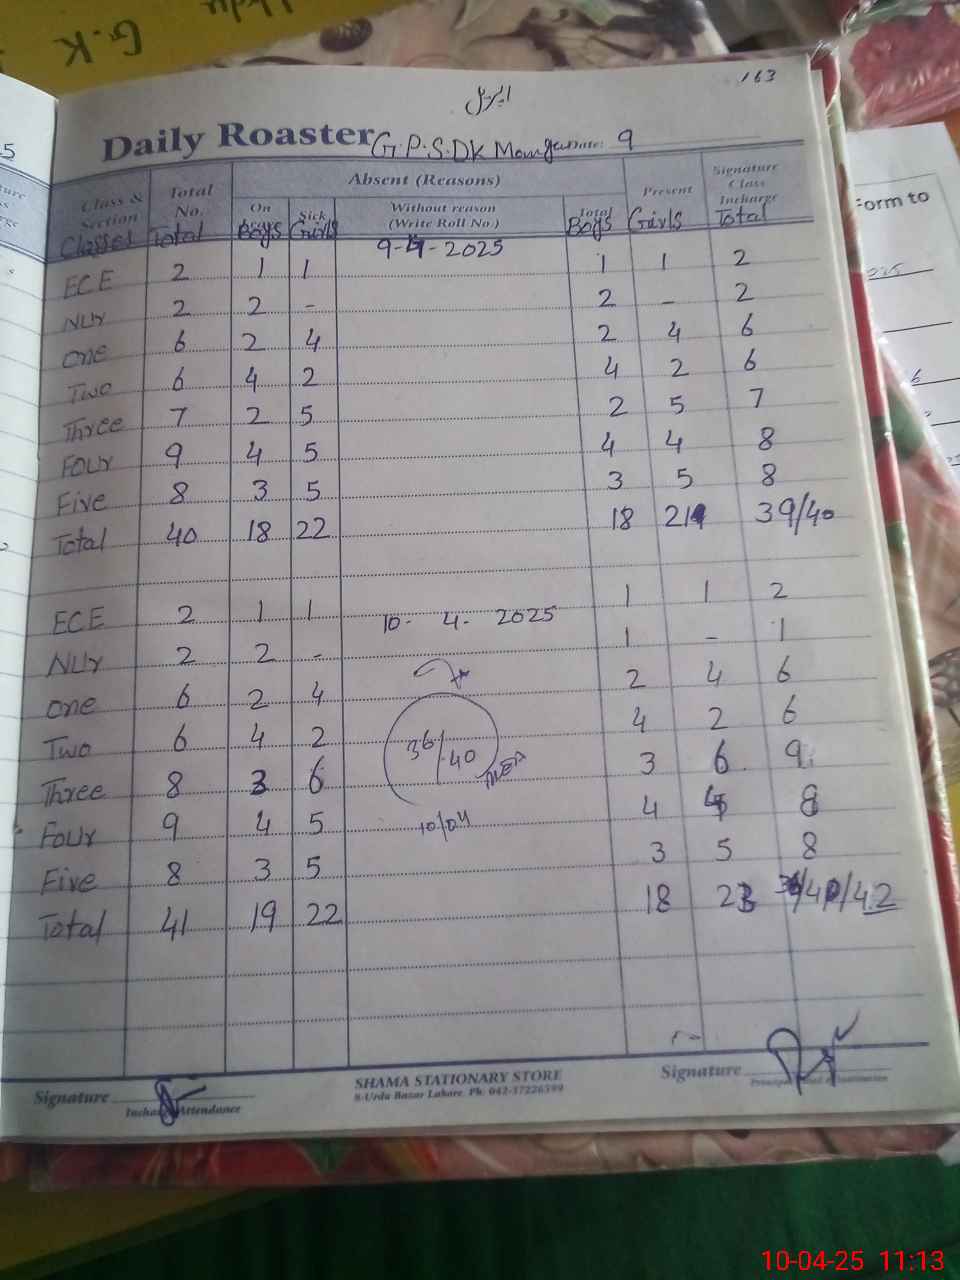 163
اپریل
Daily Roaster G.P.S.DK Date: 9
Class & Section Total No. Absent (Reasons) Present Signature Class Incharge
On Sick Without reason (Write Roll No.) Total
Classes Total Boys Girls Boys Girls Total
9-4-2025
ECE 2 1 1 1 1 2
Nur 2 2 - 2 - 2
One 6 2 4 2 4 6
Two 6 4 2 4 2 6
Three 7 2 5 2 5 7
Four 9 4 5 4 4 8
Five 8 3 5 3 5 8
Total 40 18 22 18 21 39/40
ECE 2 1 1 10-4-2025 1 1 2
Nur 2 2 - 1 - 1
One 6 2 4 2 4 6
Two 6 4 2 36/40 4 2 6
Three 8 3 6 3 6 9
Four 9 4 5 10/04 4 8
Five 8 3 5 3 5 8
Total 41 19 22 18 /42
Signature SHAMA STATIONARY STORE Signature
Incharge Attendance 8-Urdu Bazar Lahore. Ph: 042-37226399
Form to
G.K
10-04-25 11:13